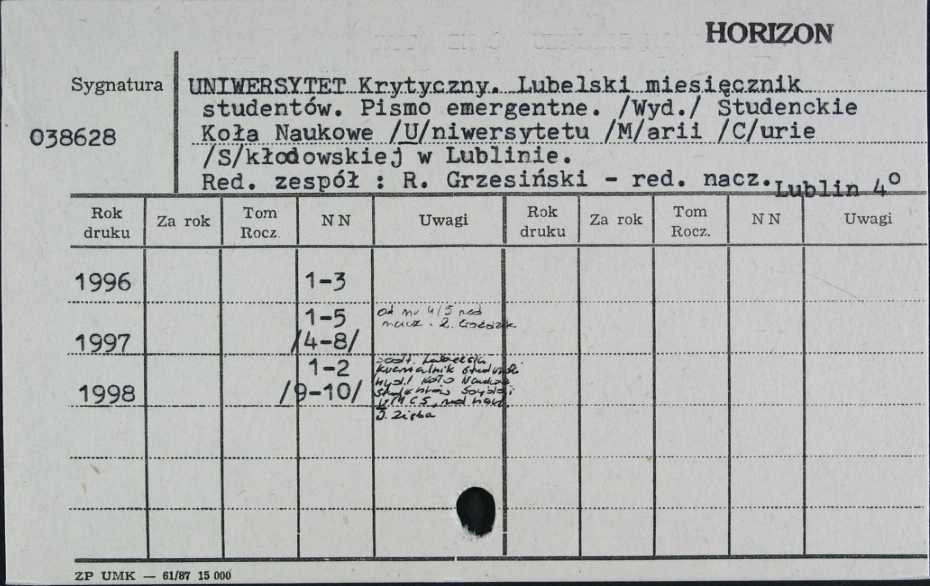 HORIZON
Sygnatura
038628
UNIWERSYTET Krytyczny. Lubelski miesięcznik
studentów. Pismo emergentne. /Wyd./ Studenckie
Koła Naukowe /U/niwersytetu /M/arii /C/urie
/S/kłodowskiej w Lublinie.
Red. zespół : R. Grzesiński - red. nacz.
Lublin 4°
Rok druku Za rok Tom Rocz. N N Uwagi Rok druku Za rok Tom Rocz. N N Uwagi
1996 1-3
1-5 od nr 4/5 red
1997 /4-8/ nacz. R.
1-2 podt. Lubelski
kwartalnik
wyd. Koło
1998 /9-10/ studentów
UMCS, red. nacz.
J. Zięba
ZP UMK — 61/87 15 000